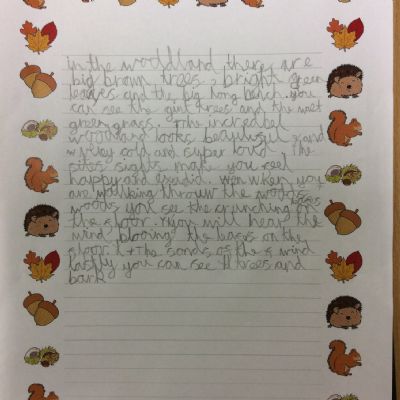 in the woodland there are
big brown trees, bright green
leaves and the big long bench. you
can see the giant trees and the wet
green grass. The incredibel
woodland looks beautiful and
very cold and super loud. The
sights make you feel
happy and. Wen when you
are walking throuw the
woods you see the crunching on
the floor. You will hear the
wind blooing the leaves on the
floor. the sonds of the wind
lastly you can see trees and
bark